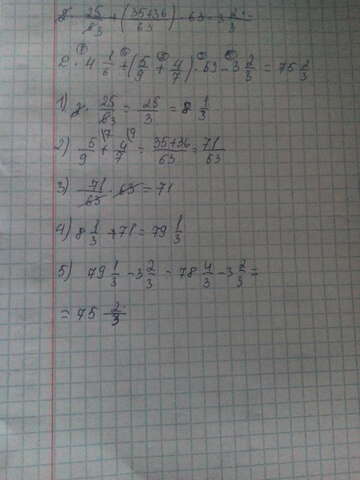 2 · 25/63 + (35+36/63) · 63 - 3 2/3 =
2 · 4 1/6 + (5/9 + 4/7) · 63 - 3 2/3 = 75 2/3
1) 2 · 25/63 = 25/3 = 8 1/3
2) 5/9 + 4/7 = 35+36/63 = 71/63
3) 71/63 · 63 = 71
4) 8 1/3 + 71 = 79 1/3
5) 79 1/3 - 3 2/3 = 78 4/3 - 3 2/3 =
= 75 2/3